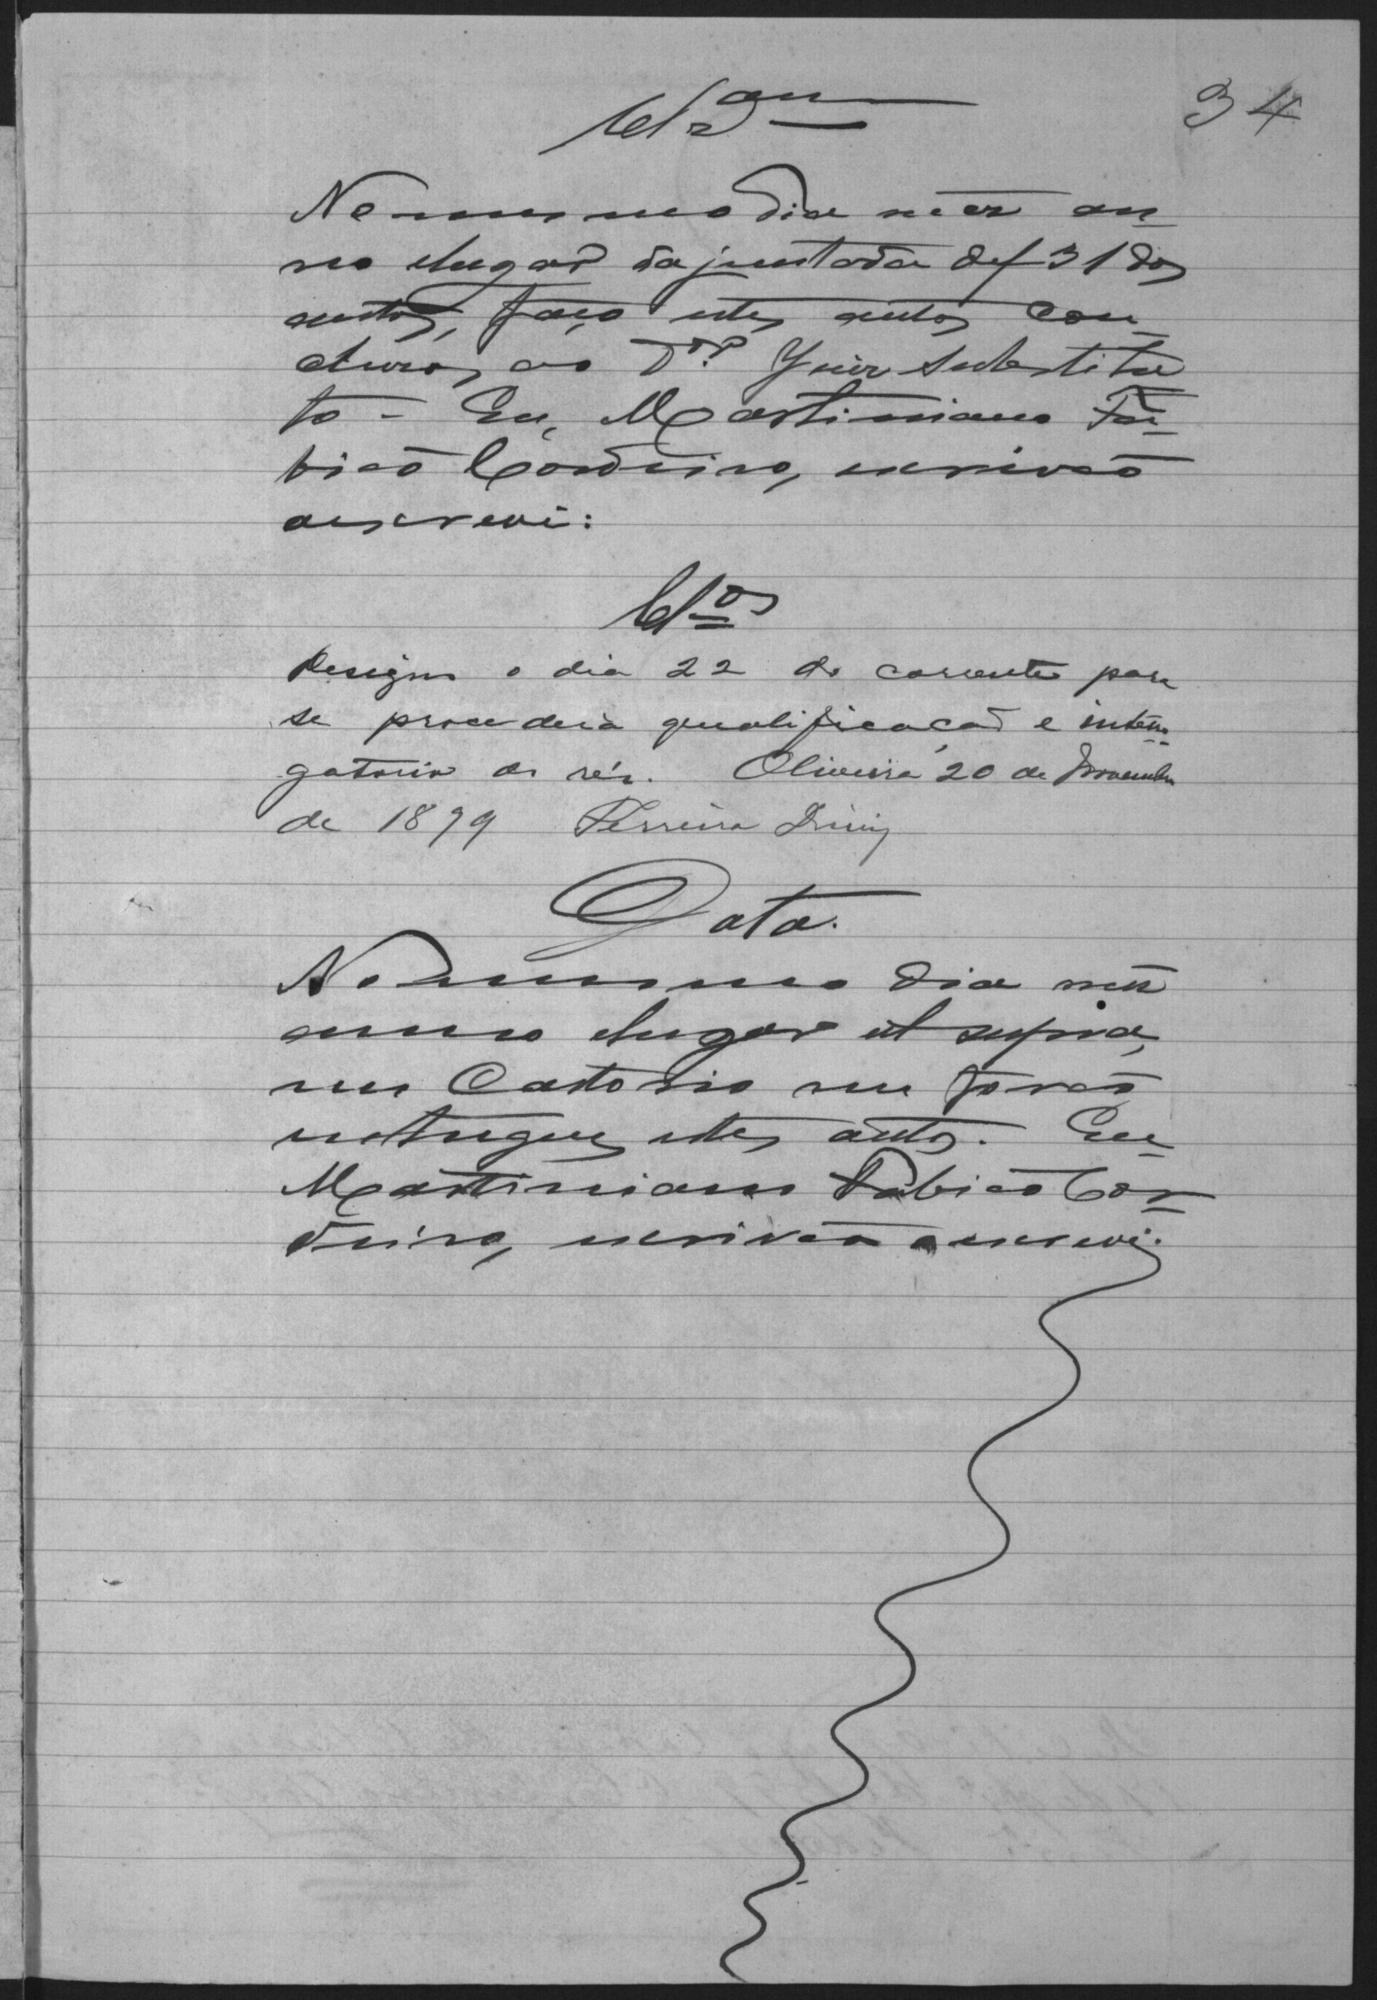 34
Clsam
No mesmo dia mez an-
no e lugar da juntada def 31 dos
autos, faço estes autos con-
clusos ao Dor. Juiz Substitu
to - Eu, Martiniano Fa-
bião Cordeiro, escrivão
o escrevi:
Clos
Designo o dia 22 do corrente para
se proceder à qualificação e inter-
gatorio do réo. Oliveira 20 de Novembro
de 1899 Ferreira Diniz
Data.
No mesmo dia mez
anno e lugar ut supra,
em Cartorio me forão
entregues estes autos. Eu
Martiniano Fabião Cor-
deiro, escrivão o escrevi.